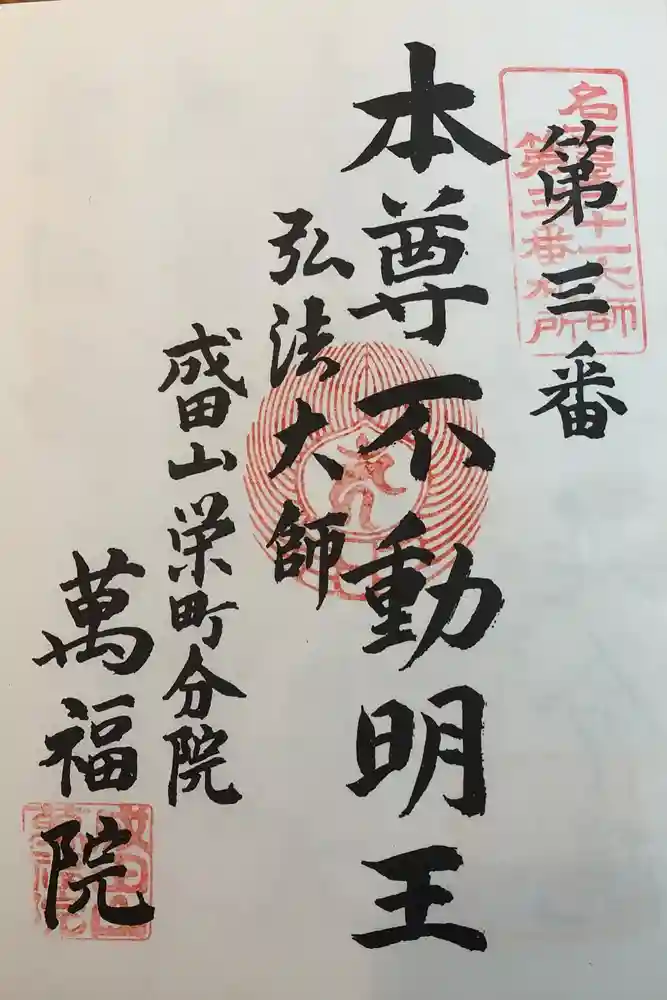 名古屋二十一大師
第三番札所
第三番
本尊不動明王
弘法大師
成田山栄町分院
萬福院